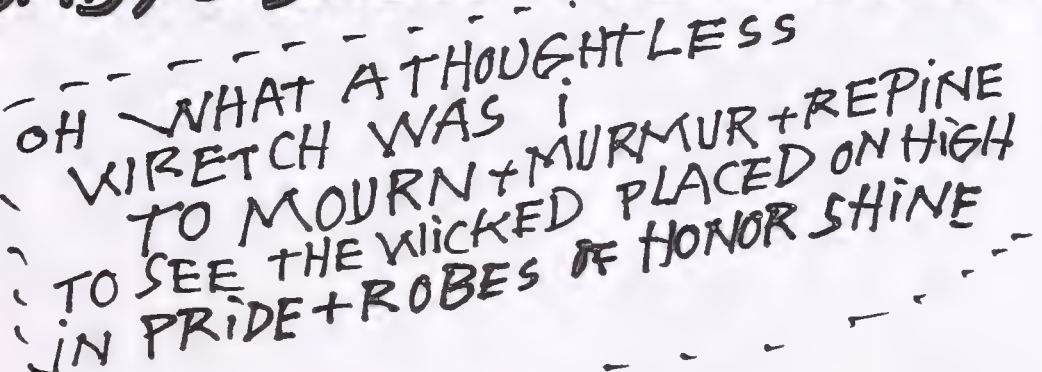 OH WHAT A THOUGHTLESS
WRETCH WAS i
TO MOURN + MURMUR + REPINE
TO SEE THE WICKED PLACED ON HIGH
IN PRIDE + ROBES OF HONOR SHINE